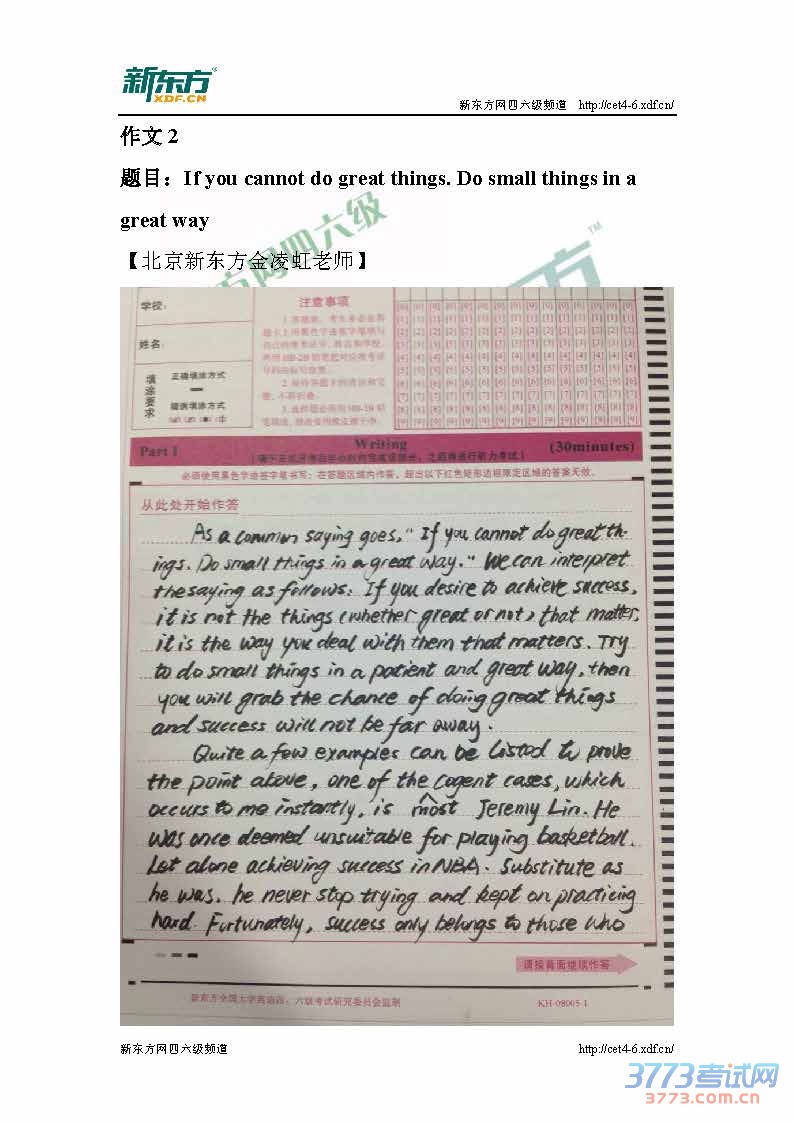 新东方
XDF.CN
新东方网四六级频道 http://cet4-6.xdf.cn/
作文 2
题目：If you cannot do great things. Do small things in a
great way
【北京新东方金凌虹老师】
学校：
姓名：
填涂要求
正确填涂方式
错误填涂方式
注意事项
Part I
Writing
(30minutes)
必须使用黑色字迹签字笔书写；在答题区域内作答，超出以下红色矩形边框限定区域的答案无效。
从此处开始作答
As a common saying goes, " If you cannot do great th-
ings. Do small things in a great way." We can interpret
the saying as follows. If you desire to achieve success,
it is not the things (whether great or not) that matter,
it is the way you deal with them that matters. Try
to do small things in a patient and great way, then
you will grab the chance of doing great things
and success will not be far away.
Quite a few examples can be listed to prove
the point above, one of the cogent cases, which
occurs to me instantly, is most Jeremy Lin. He
was once deemed unsuitable for playing basketball.
Let alone achieving success in NBA. Substitute as
he was, he never stop trying and kept on practicing
hard. Furtunately, success only belongs to those who
请按背面继续作答
新东方全国大学英语四、六级考试研究委员会监制
KH-08005-1
新东方网四六级频道 http://cet4-6.xdf.cn/
3773考试网
3773.com.cn